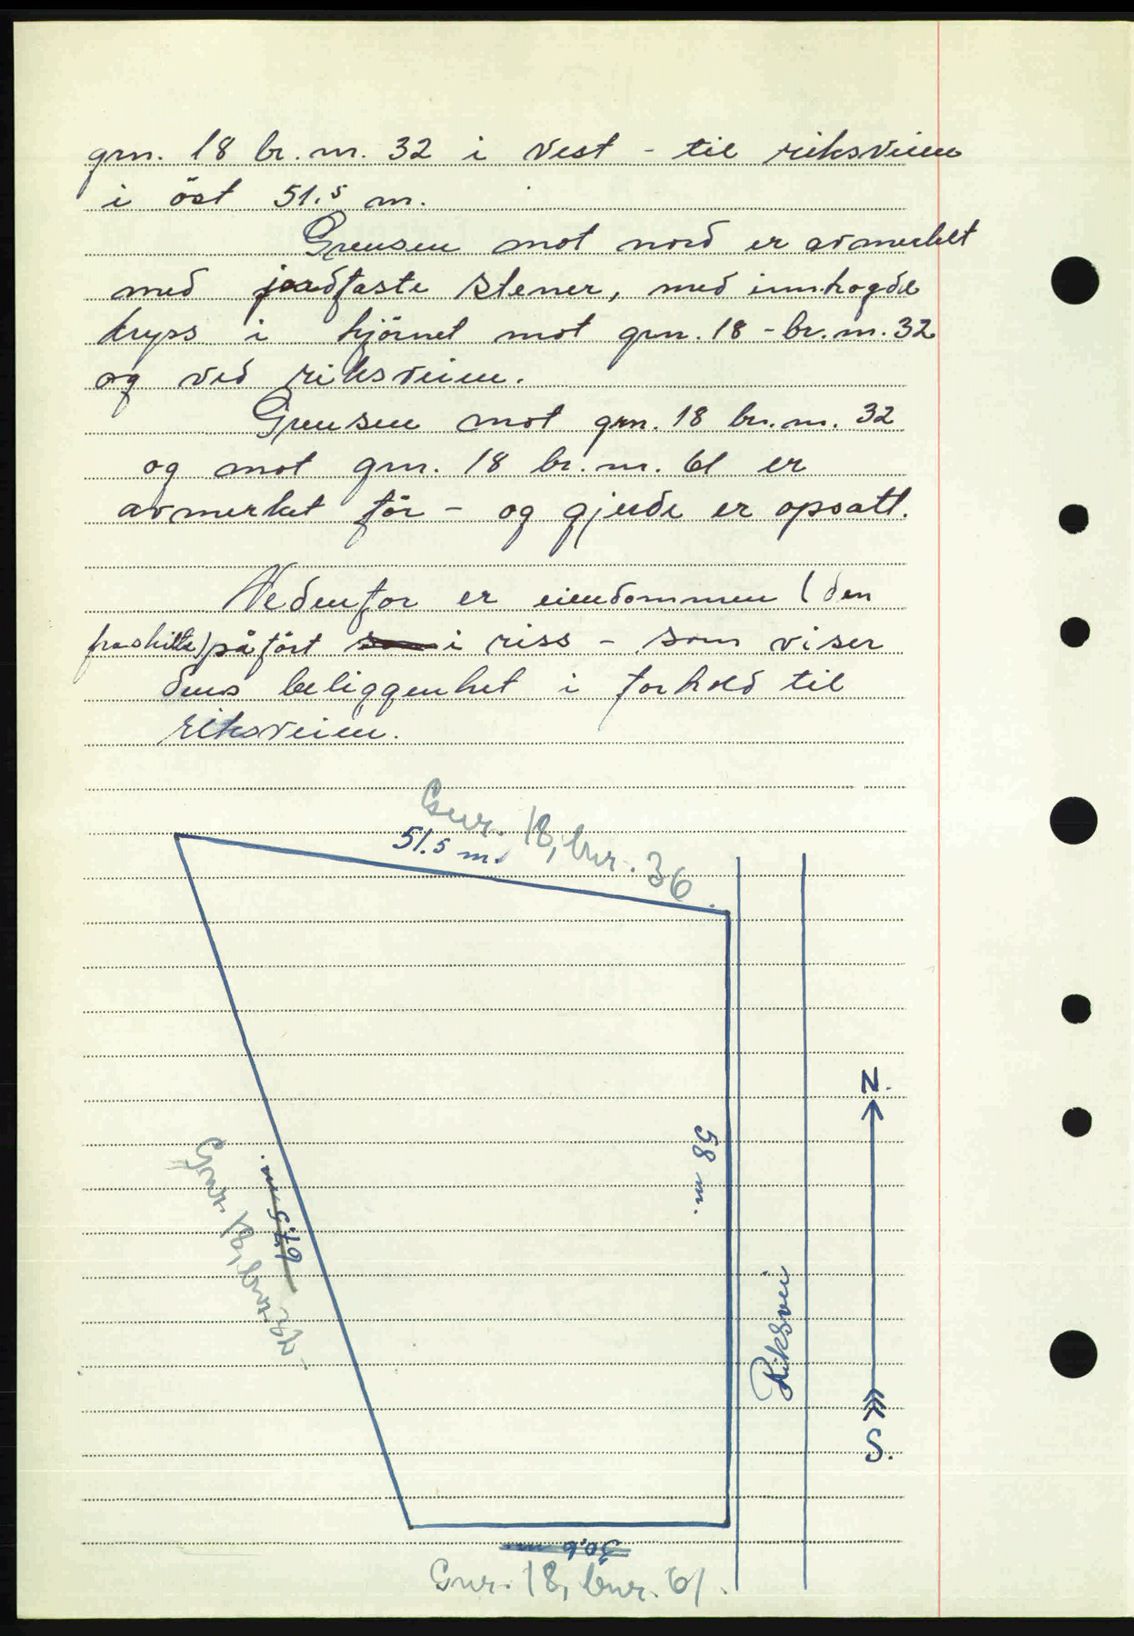 grn. 18 br. nr. 32 i vest - til riksveien
i öst 51.5 m.
Grensen mot nord er avmerket
med jordfaste stener, med innhogde
kryss i hjörnet mot grn. 18 - br. nr. 32
og ved riksveien.
Grensen mot grn. 18 br. nr. 32
og mot grn. 18 br. nr. 61 er
avmerket för - og gjerde er opsatt.
Nedenfor er eiendommen (den
fraskilte) påfört i riss - som viser
dens beliggenhet i forhold til
riksveien.
Gnr. 18, bnr. 36.
51.5 m.
N.
58 m.
67,5 m.
Gnr. 18, bnr.
Riksvei
S.
30,6 m
Gnr. 18, bnr. 61.